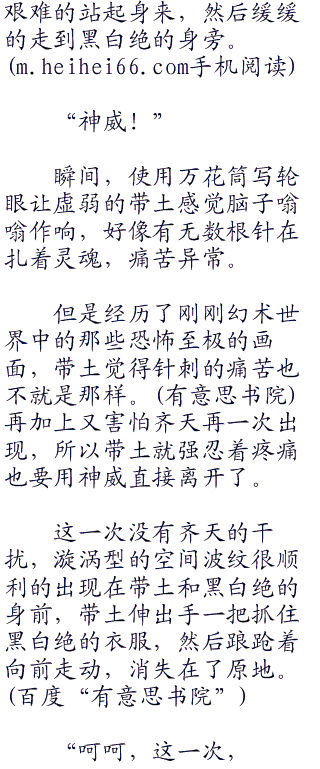 艰难的站起身来，然后缓缓
的走到黑白绝的身旁。
(m.heihei66.com手机阅读)
“神威！”
瞬间，使用万花筒写轮
眼让虚弱的带土感觉脑子嗡
嗡作响，好像有无数根针在
扎着灵魂，痛苦异常。
但是经历了刚刚幻术世
界中的那些恐怖至极的画
面，带土觉得针刺的痛苦也
不就是那样。(有意思书院)
再加上又害怕齐天再一次出
现，所以带土就强忍着疼痛
也要用神威直接离开了。
这一次没有齐天的干
扰，漩涡型的空间波纹很顺
利的出现在带土和黑白绝的
身前，带土伸出手一把抓住
黑白绝的衣服，然后踉跄着
向前走动，消失在了原地。
(百度“有意思书院”)
“呵呵，这一次，